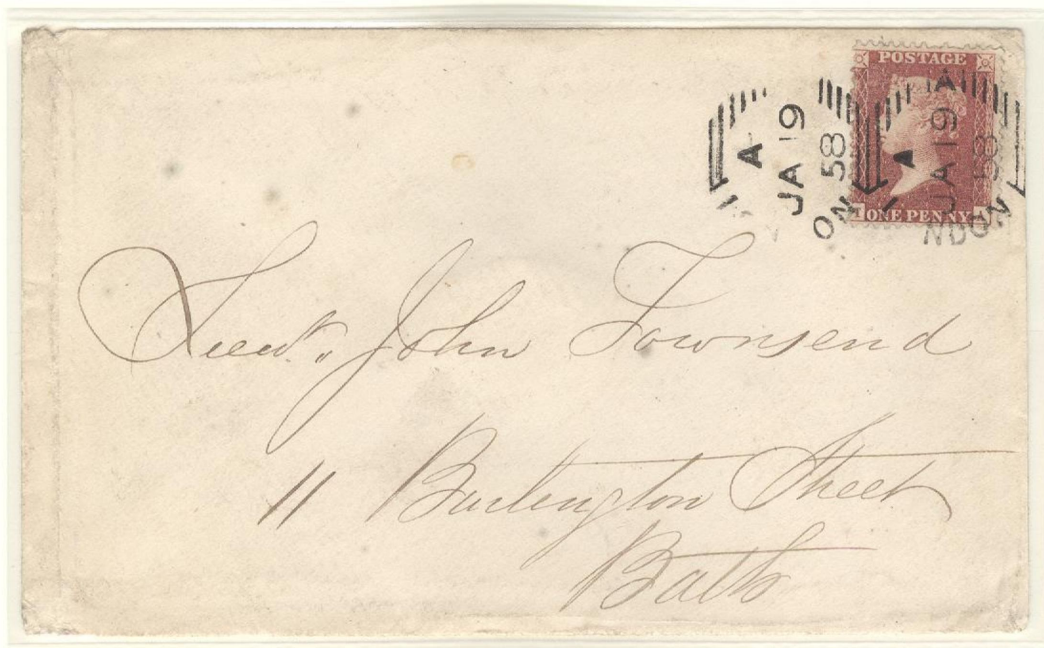 POSTAGE
ONE PENNY
A
JA 19
58
ON
A
A
JA 19
58
NDON
Lieut. John Townsend
11 Burlington Street
Bath